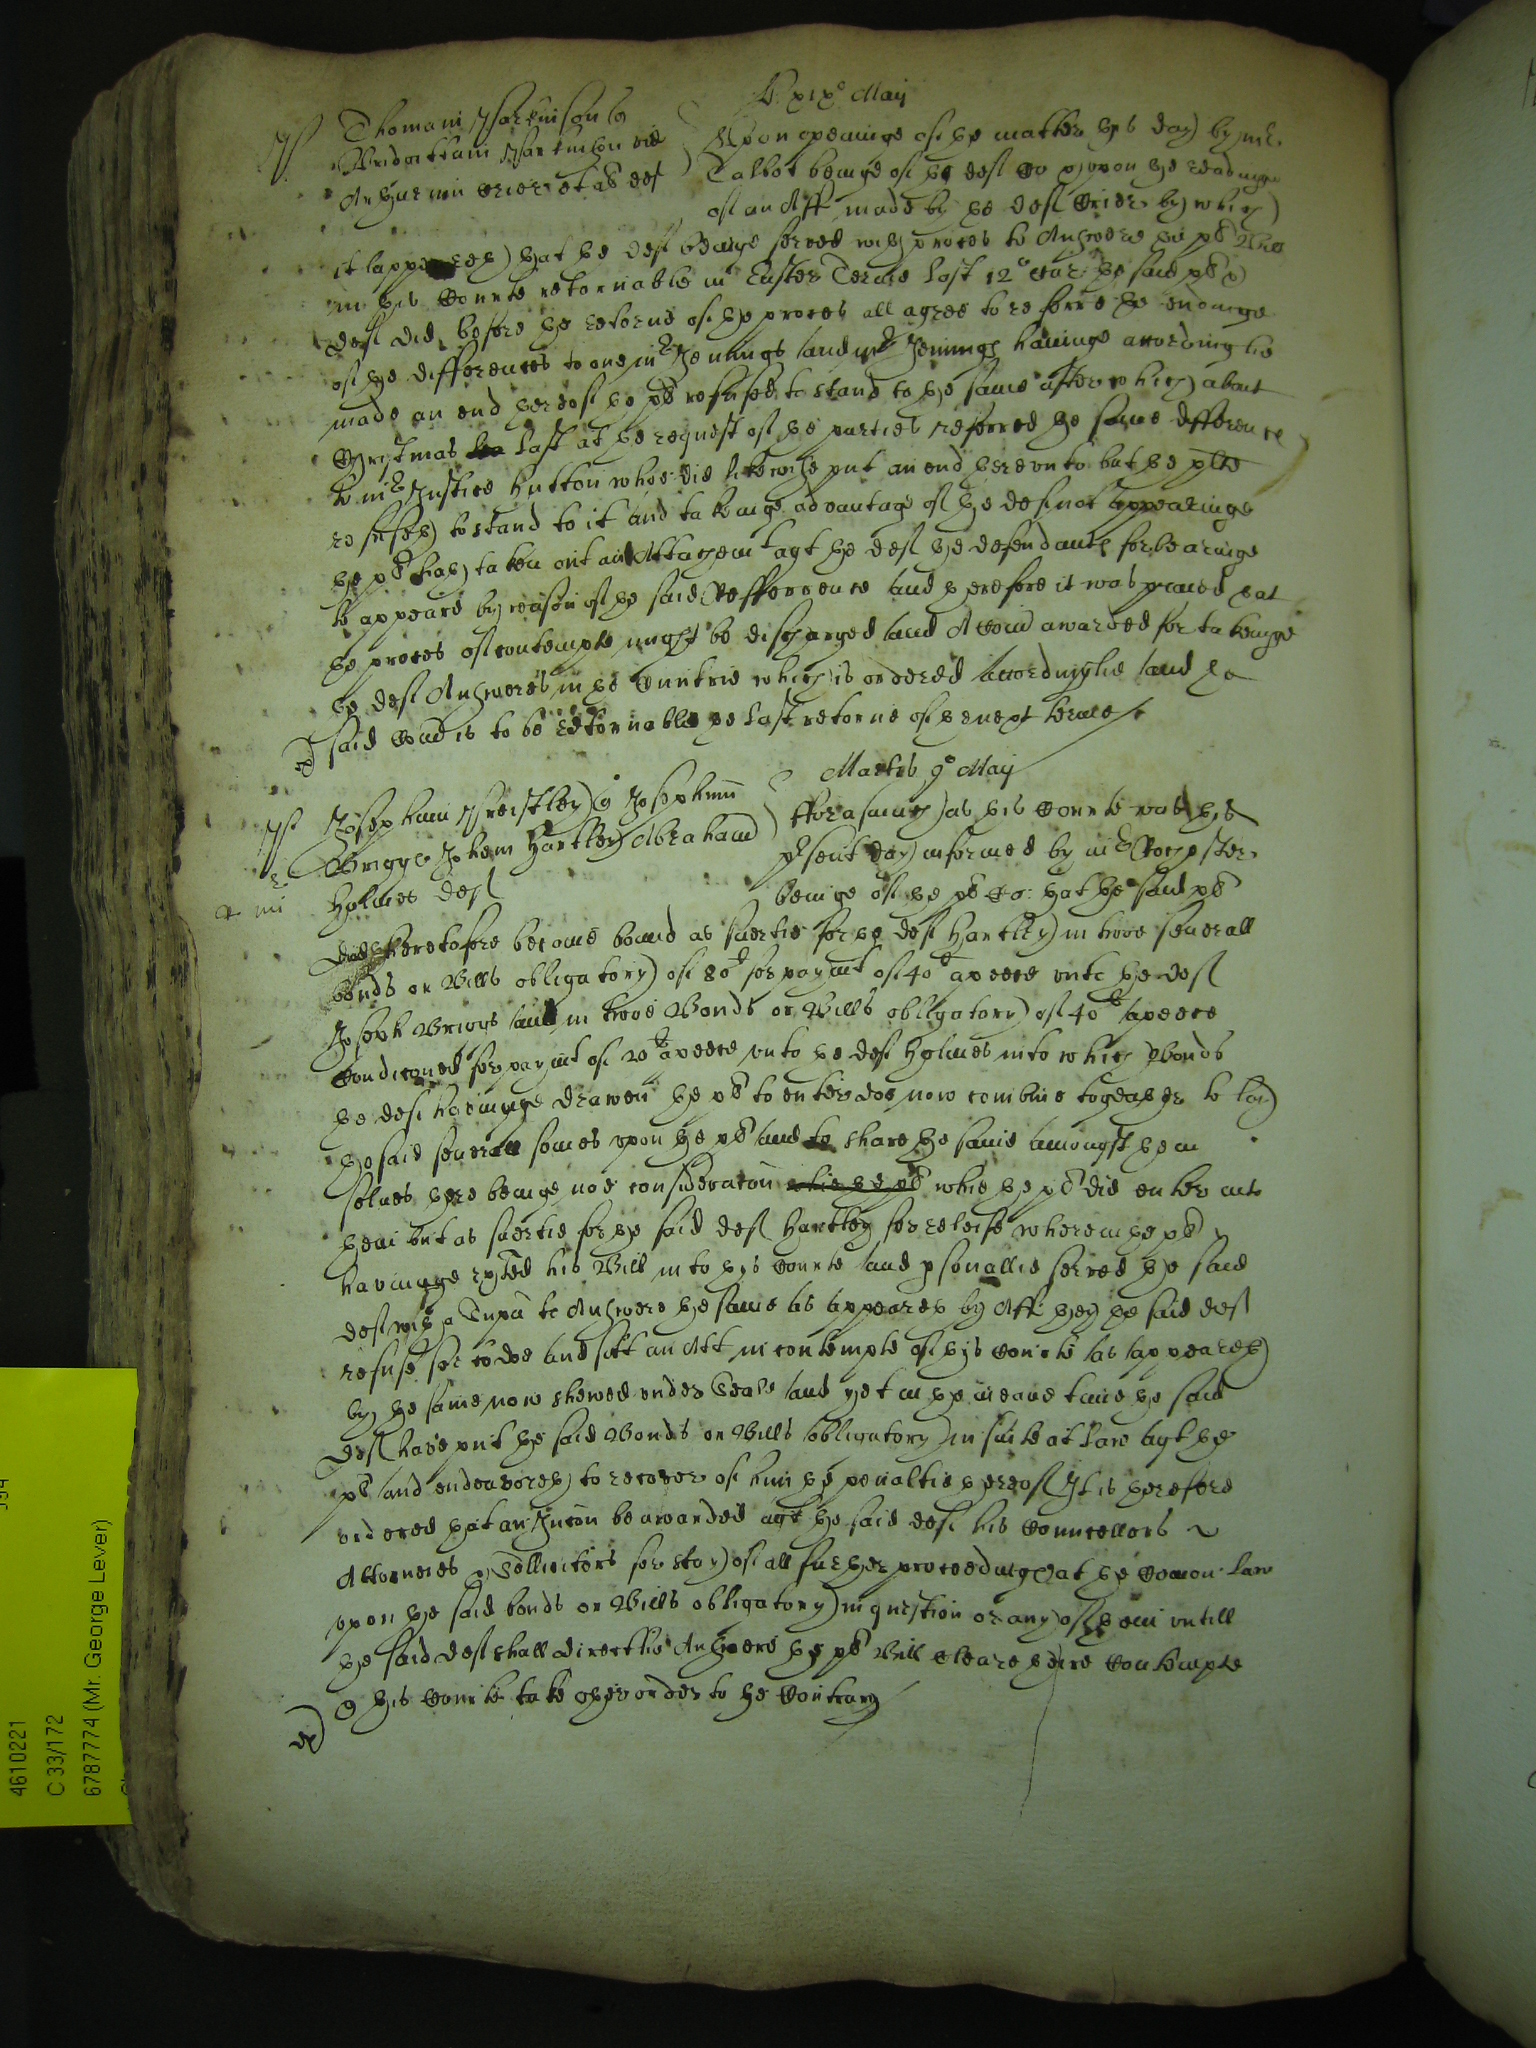 xixo Maij
Thomam
Upon openinge of the matter this day by mr
Talbot beinge of the deft Co upon the readinge
of an Aff made by the deft by which
it appeareth that the deft beinge served with proces to Answere the plt Bill
in this Courte retornable in Easter Terme last 12o Car the said plt &
deft did before the retorne of the proces all agree to referre the endinge
of the differences to one mr Jenings and mr Jenings havinge accordinglie
made an end thereof the plt refused to stand to the same after which about
Christmas last at the request of the parties referred the same difference
to mr Justice Hutton whoe did likewise put an end therevnto but the plte
refuseth to stand to it and takeinge advantage of the def not appearinge
the plt hath taken out an Attachemt agt the deft the defendants forbearinge
to appeare by reason of the said Refference and therefore it was praied that
the proces of contempte might be discharged and A Comn awarded for takeinge
the deft Answeres in the Cuntrie which is ordered accordinglie and the
said Comn is to be retornable the last retorne of the next terme
Martis 9o Maij
Josephum Priestley Josephum
Briggs Johem Hartley Abraham
Holmes deft
Fforasmuch as this Courte was this
psent day informed by mr Rochester
beinge of the plt Co: that the said plt
did heretofore become bound as suertie for the deft Hartley in twoe severall
bonds or Bills obligatory of 80l for paymt of 40l apeece vnto the deft
Joseph Briggs and in twoe Bonds or Bills obligatory of 40l apeece
Condiconed for paymt of 20l apeece vnto the deft Holmes into which bonds
the deft haveinge drawen the plt to enter doe now combine togeather to lay
the said severall somes vpon the plt and to share the same amongst them
selves there beinge noe consideracon whie the plt whie the plt did enter into
them but as suertie for the said deft Hartley for releife wherein the plt
havinge exhited his Bill into this Courte and psonallie served the said
deft with a Supa to Answere the same as appeareth by Aff they the said deft
refuse soe to doe and sitt an Att in contempte of this Courte as appeareth
by the same now shewed vnder Seale and yet in the meane time the said
deft have put the said Bonds or Bills obligatory in suite at Law agt the
plt and endeavoreth to recover of him the penaltie thereof It is therefore
ordered that an Iniuncon be awarded agt the said deft his Councellors
Attorneies & Sollicitors for stay of all further proceedinges at the Comon Law
vpon the said bonds or Bills obligatory in question or any of them vntill
the said deft shall directlie Answere the plt Bill cleare theire Contempte
& this Courte take other order to the Contrary
4610221
C 33/172
6787774 (Mr. George Lever)